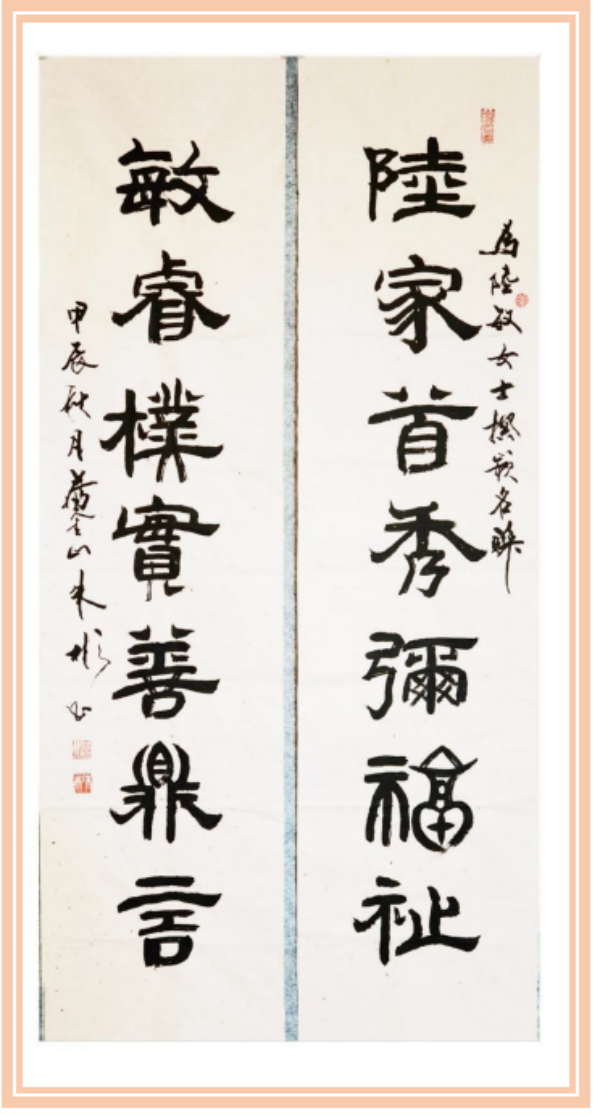 為陸敏女士撰嵌名聯
陸家首秀彌福祉
敏睿樸實善鼎言
甲辰秋月萬金山朱彬書